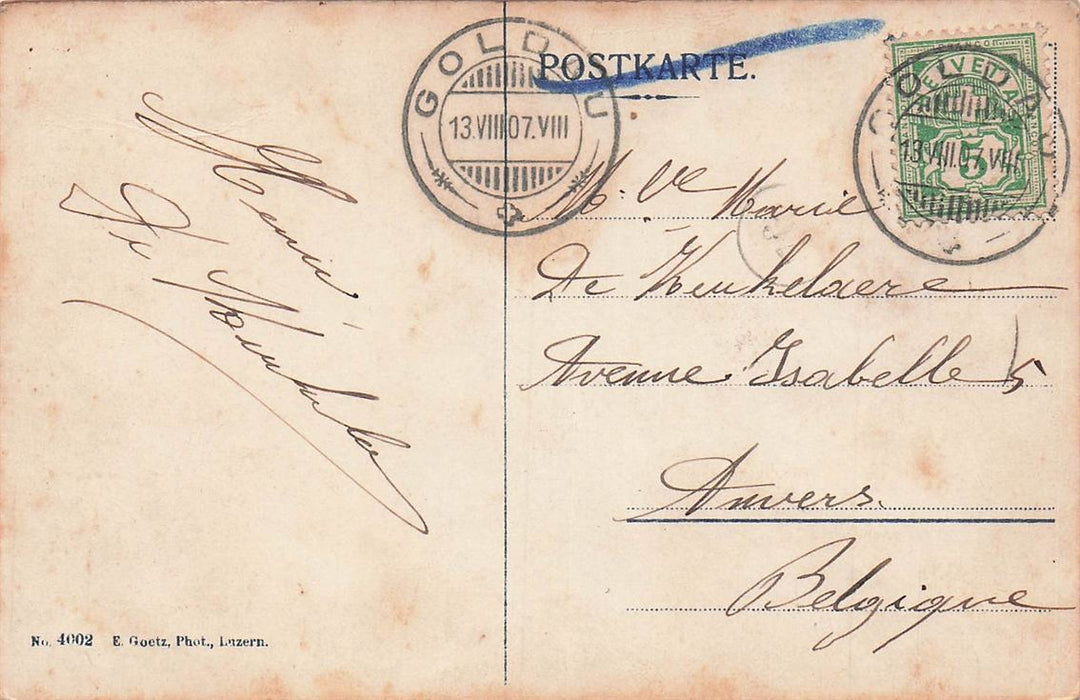 POSTKARTE.
GOLDAU
13.VIII 07.VIII
HELVETIA
5
GOLDAU
13.VIII.07.VIII
Merci
M. Vve Marie
De Keukelaere
Avenue Isabelle 5
Anvers.
Belgique
No. 4002 E. Goetz, Phot., Luzern.